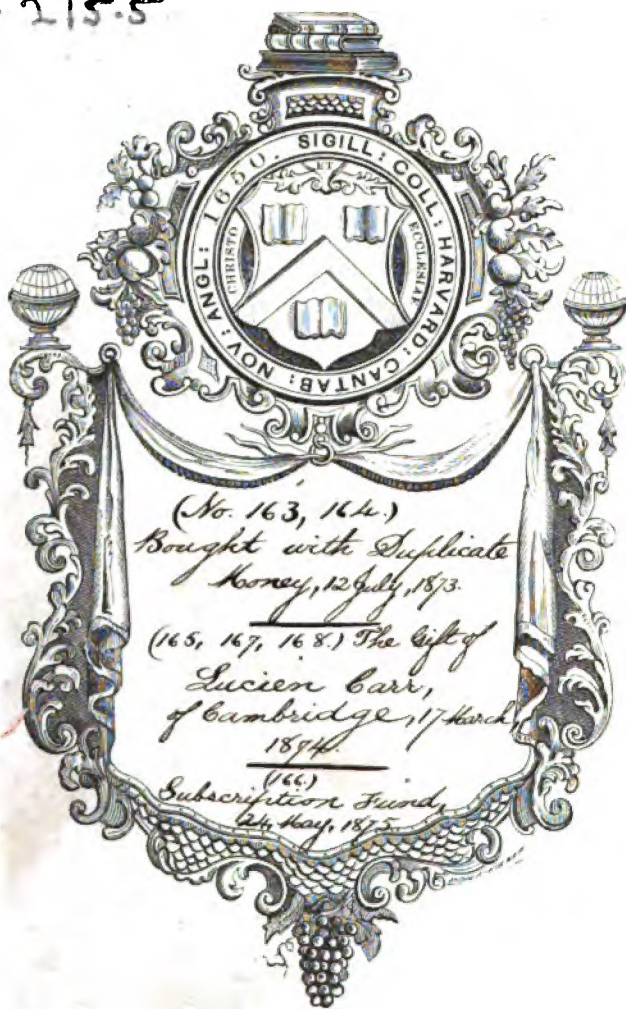 215.5
SIGILL: COLL: HARVARD: CANTAB: NOV: ANGL: 1650.
ET
CHRISTO
ECCLESIAE
(No. 163, 164.)
Bought with Duplicate
Money, 12 July, 1873.
(165, 167, 168.) The Gift of
Lucien Carr,
of Cambridge, 17 March
1874.
(166)
Subscription Fund,
24 May, 1875.